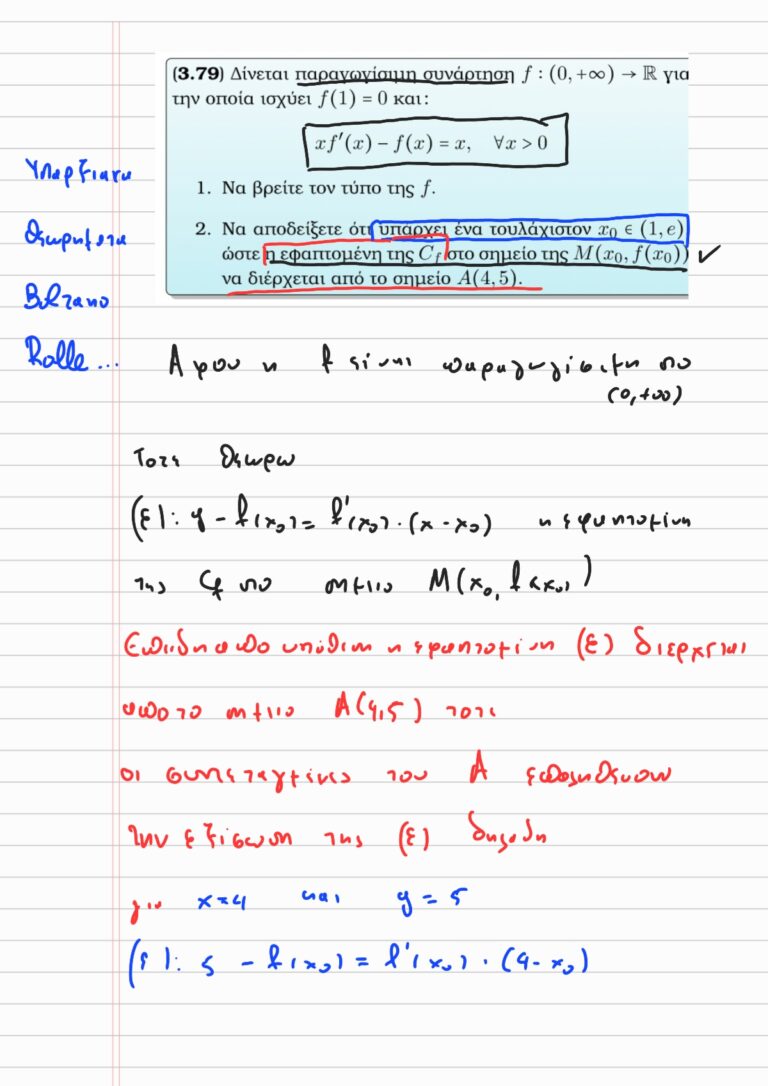 (3.79) Δίνεται παραγωγίσιμη συνάρτηση f : (0, +∞) → ℝ για
την οποία ισχύει f(1) = 0 και:
xf′(x) − f(x) = x, ∀x > 0
1. Να βρείτε τον τύπο της f.
2. Να αποδείξετε ότι υπάρχει ένα τουλάχιστον x₀ ∈ (1, e)
ώστε η εφαπτομένη της C_f στο σημείο της M(x₀, f(x₀))
να διέρχεται από το σημείο A(4, 5).
Υπαρξιακα
Θεωρηματα
Bolzano
Rolle ...
Αφου η f είναι παραγωγίσιμη στο
(0,+∞)
Τοτε θεωρω
(ε): y − f(x₀) = f′(x₀) · (x − x₀) η εφαπτομένη
της Cf στο σημειο M(x₀, f(x₀))
Επειδη απο υποθεση η εφαπτομένη (ε) διερχεται
απο το σημειο A(4,5) τοτε
οι συντεταγμένες του A επαληθευουν
την εξίσωση της (ε) δηλαδη
για x=4 και y = 5
(ε): 5 − f(x₀) = f′(x₀) · (4 − x₀)